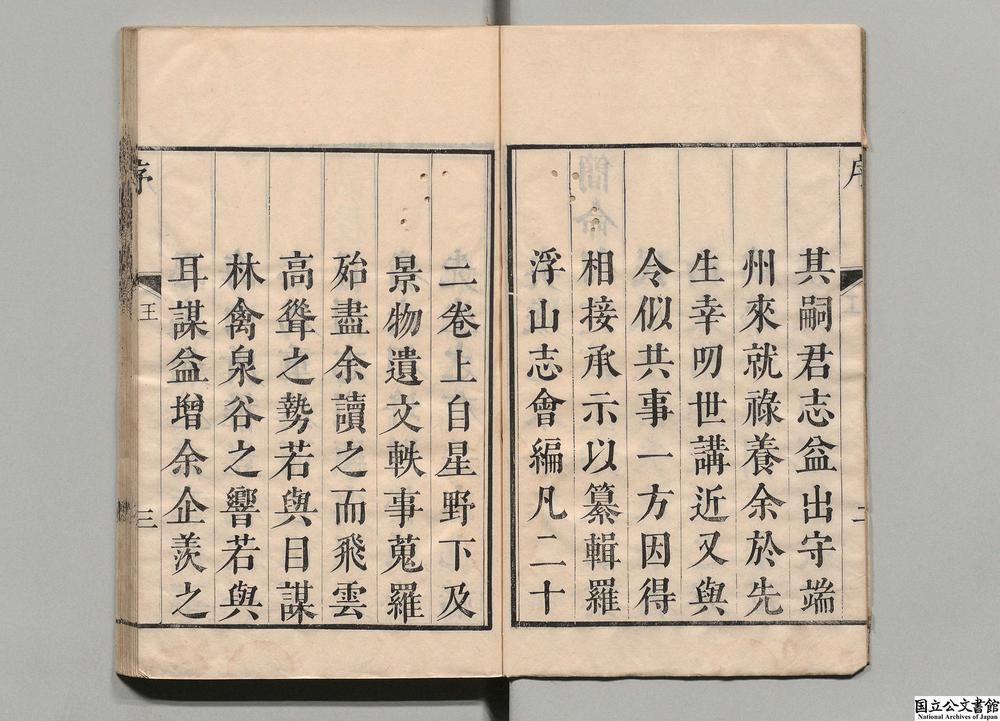 序
二
其嗣君志益出守端
州來就祿養余於先
生幸叨世講近又與
令似共事一方因得
相接承示以纂輯羅
浮山志會編凡二十
二卷上自星野下及
景物遺文軼事蒐羅
殆盡余讀之而飛雲
高聳之勢若與目謀
林禽泉谷之響若與
耳謀益增余企羨之
序
王
三
国立公文書館
National Archives of Japan